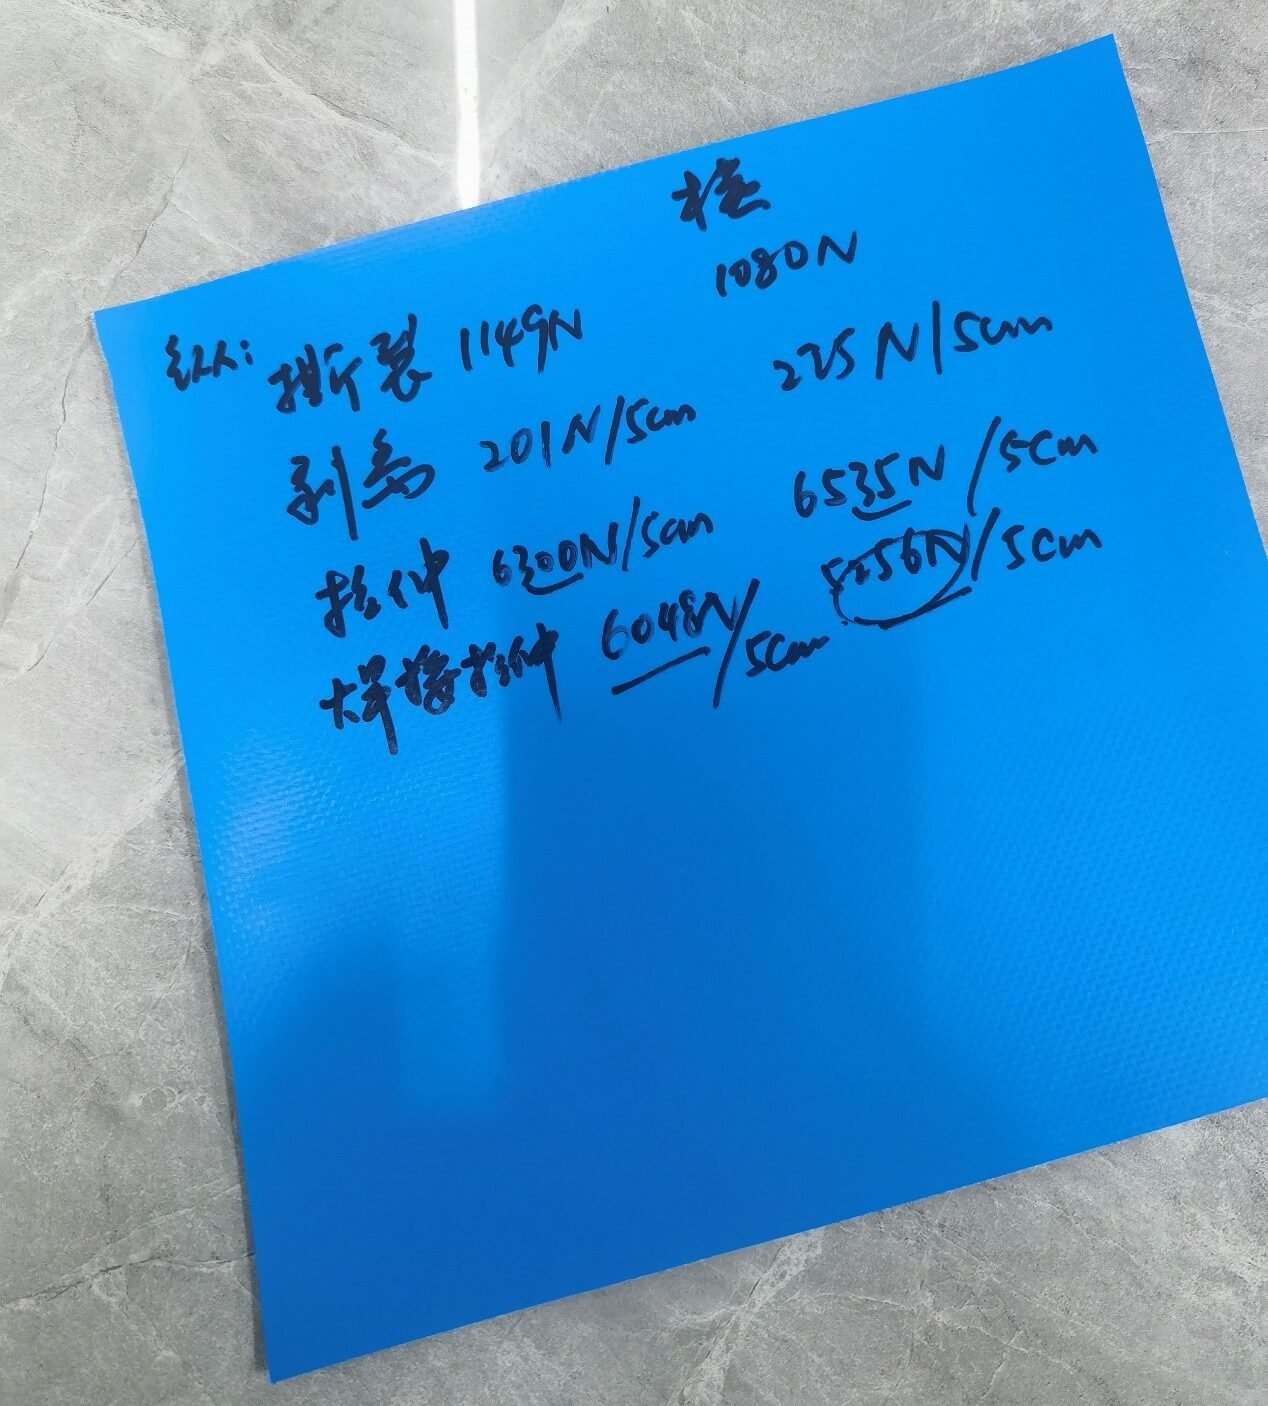 横
纵: 撕裂 1149N 1080N
剥离 201N/5cm 225N/5cm
拉伸 6300N/5cm 6535N/5cm
焊接拉伸 6048N/5cm 5256N/5cm